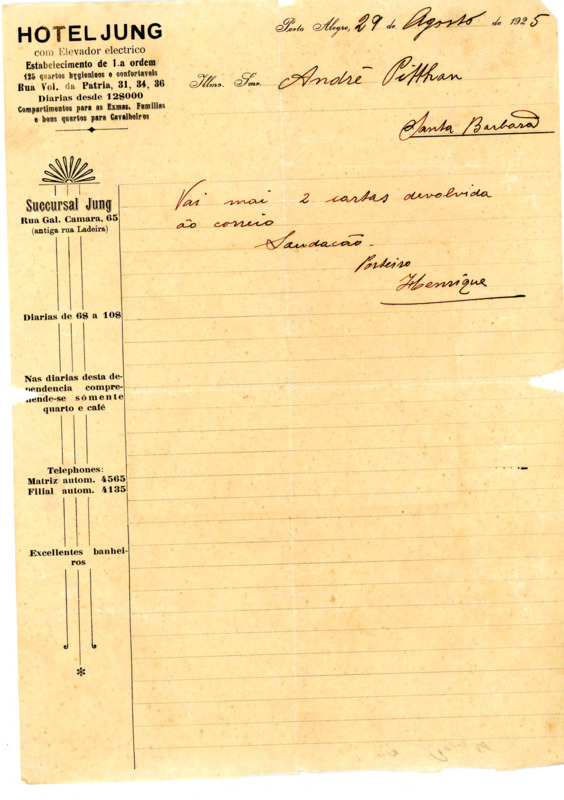 HOTEL JUNG
com Elevador electrico
Estabelecimento de 1.a ordem
125 quartos hygienicos e confortaveis
Rua Vol. da Patria, 31, 34, 36
Diarias desde 12$000
Compartimentos para as Exmas. Familias
e bons quartos para Cavalheiros
Porto Alegre, 29 de Agosto de 1925
Illmo. Snr. André Pitthan
Santa Barbara
Vai mai 2 cartas devolvida
ão correio
Saudacão.
Porteiro
Henrique
Succursal Jung
Rua Gal. Camara, 65
(antiga rua Ladeira)
Diarias de 6$ a 10$
Nas diarias desta de-
pendencia compre-
hende-se sómente
quarto e café
Telephones:
Matriz autom. 4565
Filial autom. 4135
Excellentes banhei-
ros